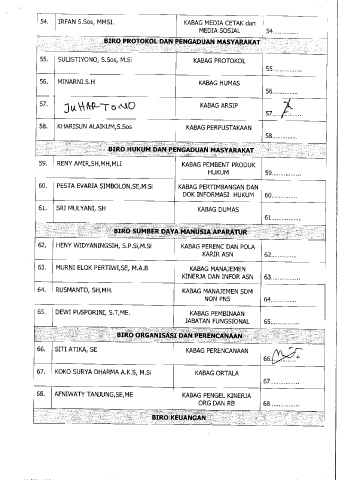 54. IRFAN S.Sos, MMSI. KABAG MEDIA CETAK dan MEDIA SOSIAL 54..............
BIRO PROTOKOL DAN PENGADUAN MASYARAKAT
55. SULISTIYONO, S.Sos, M.Si KABAG PROTOKOL 55..............
56. MINARNI.S.H KABAG HUMAS 56..............
57. JUHARTONO KABAG ARSIP 57..............
58. KHARISUN ALAIKUM,S.Sos KABAG PERPUSTAKAAN 58..............
BIRO HUKUM DAN PENGADUAN MASYARAKAT
59. RENY AMIR,SH,MH,MLI KABAG PEMBENT PRODUK HUKUM 59..............
60. PESTA EVARIA SIMBOLON,SE,M.Si KABAG PERTIMBANGAN DAN DOK INFORMASI HUKUM 60..............
61. SRI MULYANI, SH KABAG DUMAS 61..............
BIRO SUMBER DAYA MANUSIA APARATUR
62. HENY WIDYANINGSIH, S.P.Si,M.Si KABAG PERENC DAN POLA KARIR ASN 62..............
63. MURNI ELOK PERTIWI,SE, M.A.B KABAG MANAJEMEN KINERJA DAN INFOR ASN 63..............
64. RUSMANTO, SH,MH. KABAG MANAJEMEN SDM NON PNS 64..............
65. DEWI PUSPORINI, S.T,ME. KABAG PEMBINAAN JABATAN FUNGSIONAL 65..............
BIRO ORGANISASI DAN PERENCANAAN
66. SITI ATIKA, SE KABAG PERENCANAAN 66..............
67. KOKO SURYA DHARMA A.K.S, M.Si KABAG ORTALA 67..............
68. AFNIWATY TANJUNG,SE,ME KABAG PENGEL KINERJA ORG DAN RB 68..............
BIRO KEUANGAN